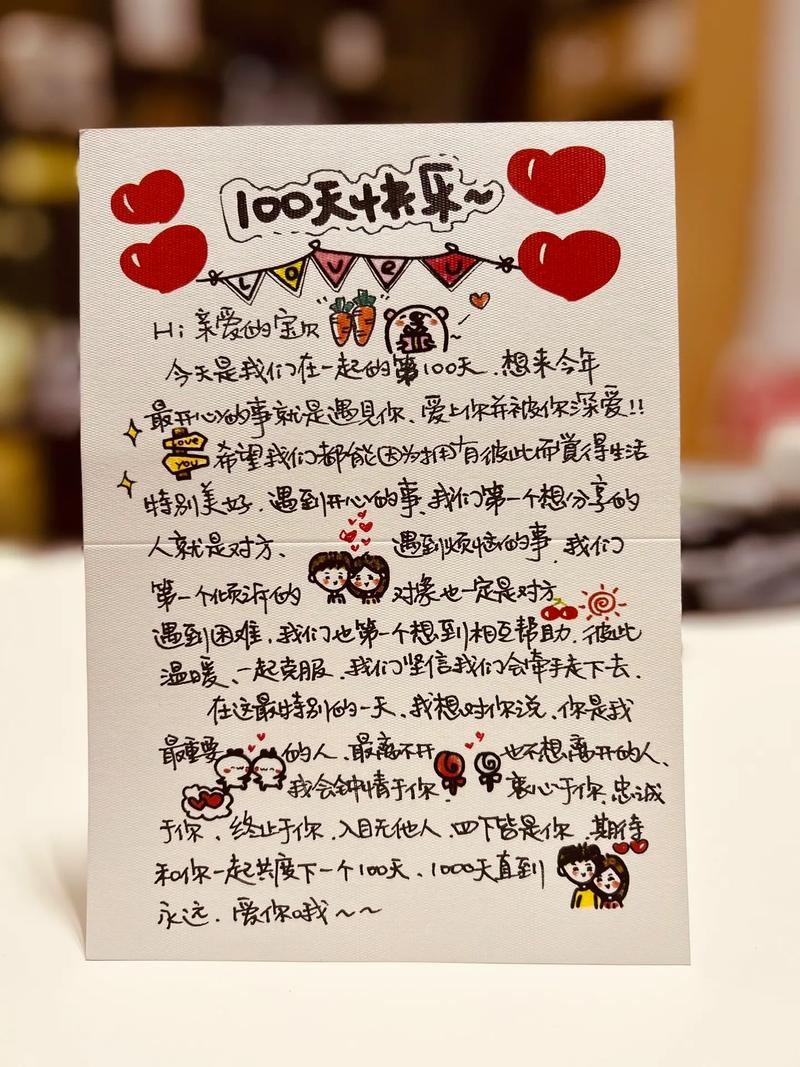 100天快乐~
LOVE U
Hi: 亲爱的宝贝
今天是我们在一起的第100天、想来今年
最开心的事就是遇见你、爱上你并被你深爱!!
Love
YOU
希望我们都能因为拥有彼此而觉得生活
特别美好、遇到开心的事、我们第一个想分享的
人就是对方、遇到烦恼的事、我们
第一个倾诉的对象也一定是对方
遇到困难、我们也第一个想到相互帮助、彼此
温暖、一起克服、我们坚信我们会牵手走下去、
在这最特别的一天、我想对你说、你是我
最重要的人、最离不开也不想离开的人、
我会钟情于你、衷心于你、忠诚
于你、终止于你、入目无他人、四下皆是你、期待
和你一起共度下一个100天、1000天直到
永远、爱你哦~~